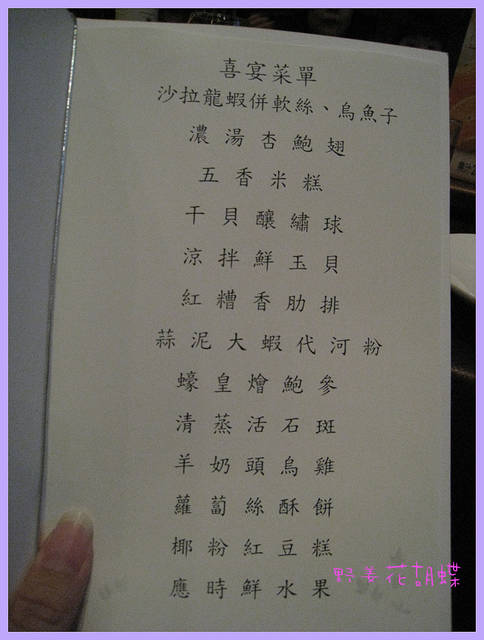 喜宴菜單
沙拉龍蝦併軟絲、烏魚子
濃湯杏鮑翅
五香米糕
干貝釀繡球
涼拌鮮玉貝
紅糟香肋排
蒜泥大蝦代河粉
蠔皇燴鮑參
清蒸活石斑
羊奶頭烏雞
蘿蔔絲酥餅
椰粉紅豆糕
應時鮮水果
野姜花胡蝶